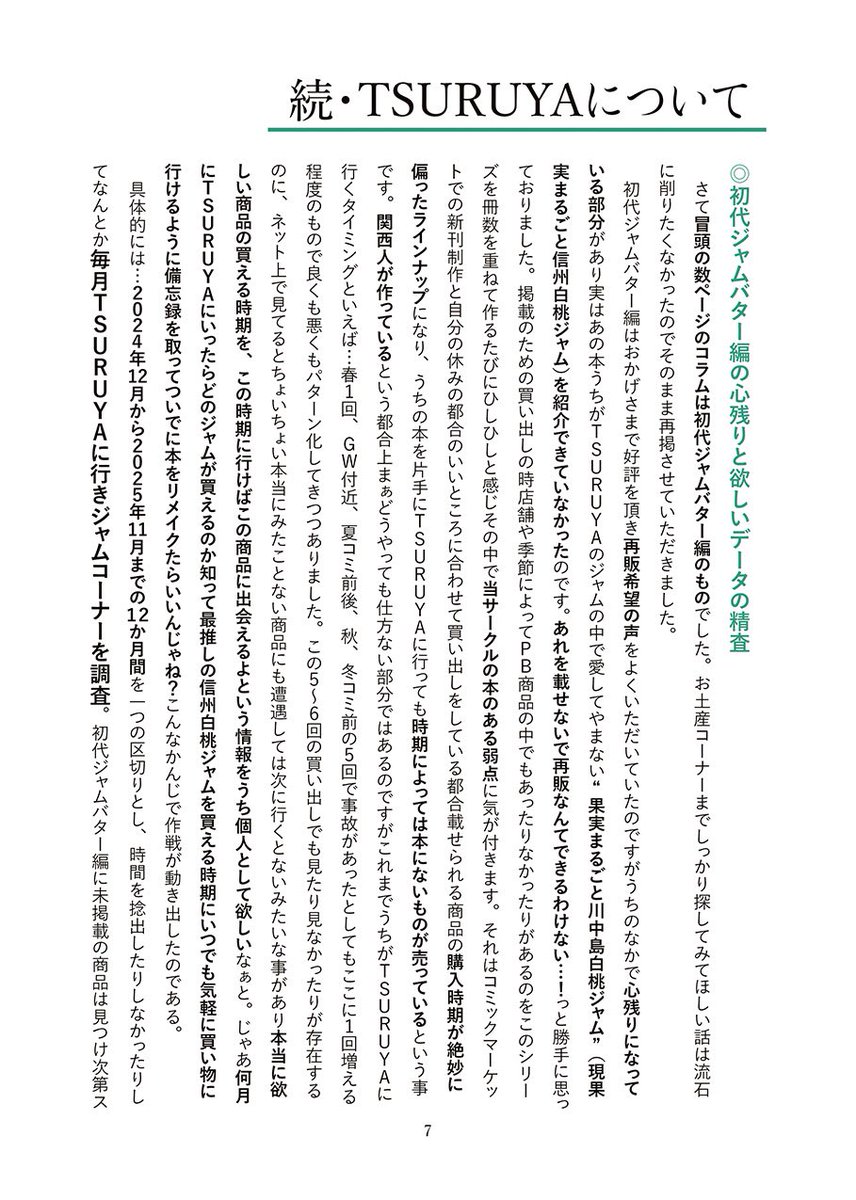 続・TSURUYAについて
◎初代ジャムバター編の心残りと欲しいデータの精査
さて冒頭の数ページのコラムは初代ジャムバター編のものでした。お土産コーナーまでしっかり探してみてほしい話は流石
に削りたくなかったのでそのまま再掲させていただきました。
初代ジャムバター編はおかげさまで好評を頂き再販希望の声をよくいただいていたのですがうちのなかで心残りになって
いる部分があり実はあの本うちがTSURUYAのジャムの中で愛してやまない“果実まるごと川中島白桃ジャム”(現果
実まるごと信州白桃ジャム)を紹介できていなかったのです。あれを載せないで再販なんてできるわけない…!っと勝手に思っ
ておりました。掲載のための買い出しの時店舗や季節によってPB商品の中でもあったりなかったりがあるのをこのシリー
ズを冊数を重ねて作るたびにひしひしと感じその中で当サークルの本のある弱点に気が付きます。それはコミックマーケッ
トでの新刊制作と自分の休みの都合のいいところに合わせて買い出しをしている都合載せられる商品の購入時期が絶妙に
偏ったラインナップになり、うちの本を片手にTSURUYAに行っても時期によっては本にないものが売っているという事
です。関西人が作っているという都合上まぁどうやっても仕方ない部分ではあるのですがこれまでうちがTSURUYAに
行くタイミングといえば…春1回、GW付近、夏コミ前後、秋、冬コミ前の5回で事故があったとしてもここに1回増える
程度のもので良くも悪くもパターン化してきつつありました。この5〜6回の買い出しでも見たり見なかったりが存在する
のに、ネット上で見てるとちょいちょい本当にみたことない商品にも遭遇しては次に行くとないみたいな事があり本当に欲
しい商品の買える時期を、この時期に行けばこの商品に出会えるよという情報をうち個人として欲しいなぁと。じゃあ何月
にTSURUYAにいったらどのジャムが買えるのか知って最推しの信州白桃ジャムを買える時期にいつでも気軽に買い物に
行けるように備忘録を取ってついでに本をリメイクたらいいんじゃね?こんなかんじで作戦が動き出したのである。
具体的には…2024年12月から2025年11月までの12か月間を一つの区切りとし、時間を捻出したりしなかったりし
てなんとか毎月TSURUYAに行きジャムコーナーを調査。初代ジャムバター編に未掲載の商品は見つけ次第ス
7